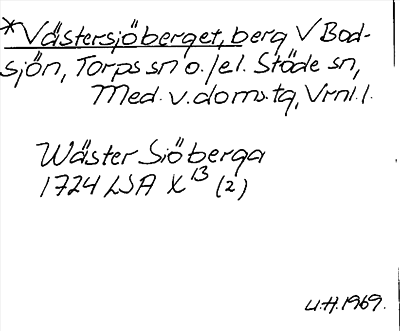 *Västersjöberget, berg V Bod-
sjön, Torps sn o./el. Stöde sn,
Med. v. doms.tg, Vrnl. l.
Wäster Siöberga
1724 LSA X¹³ (2)
U.H. 1969.